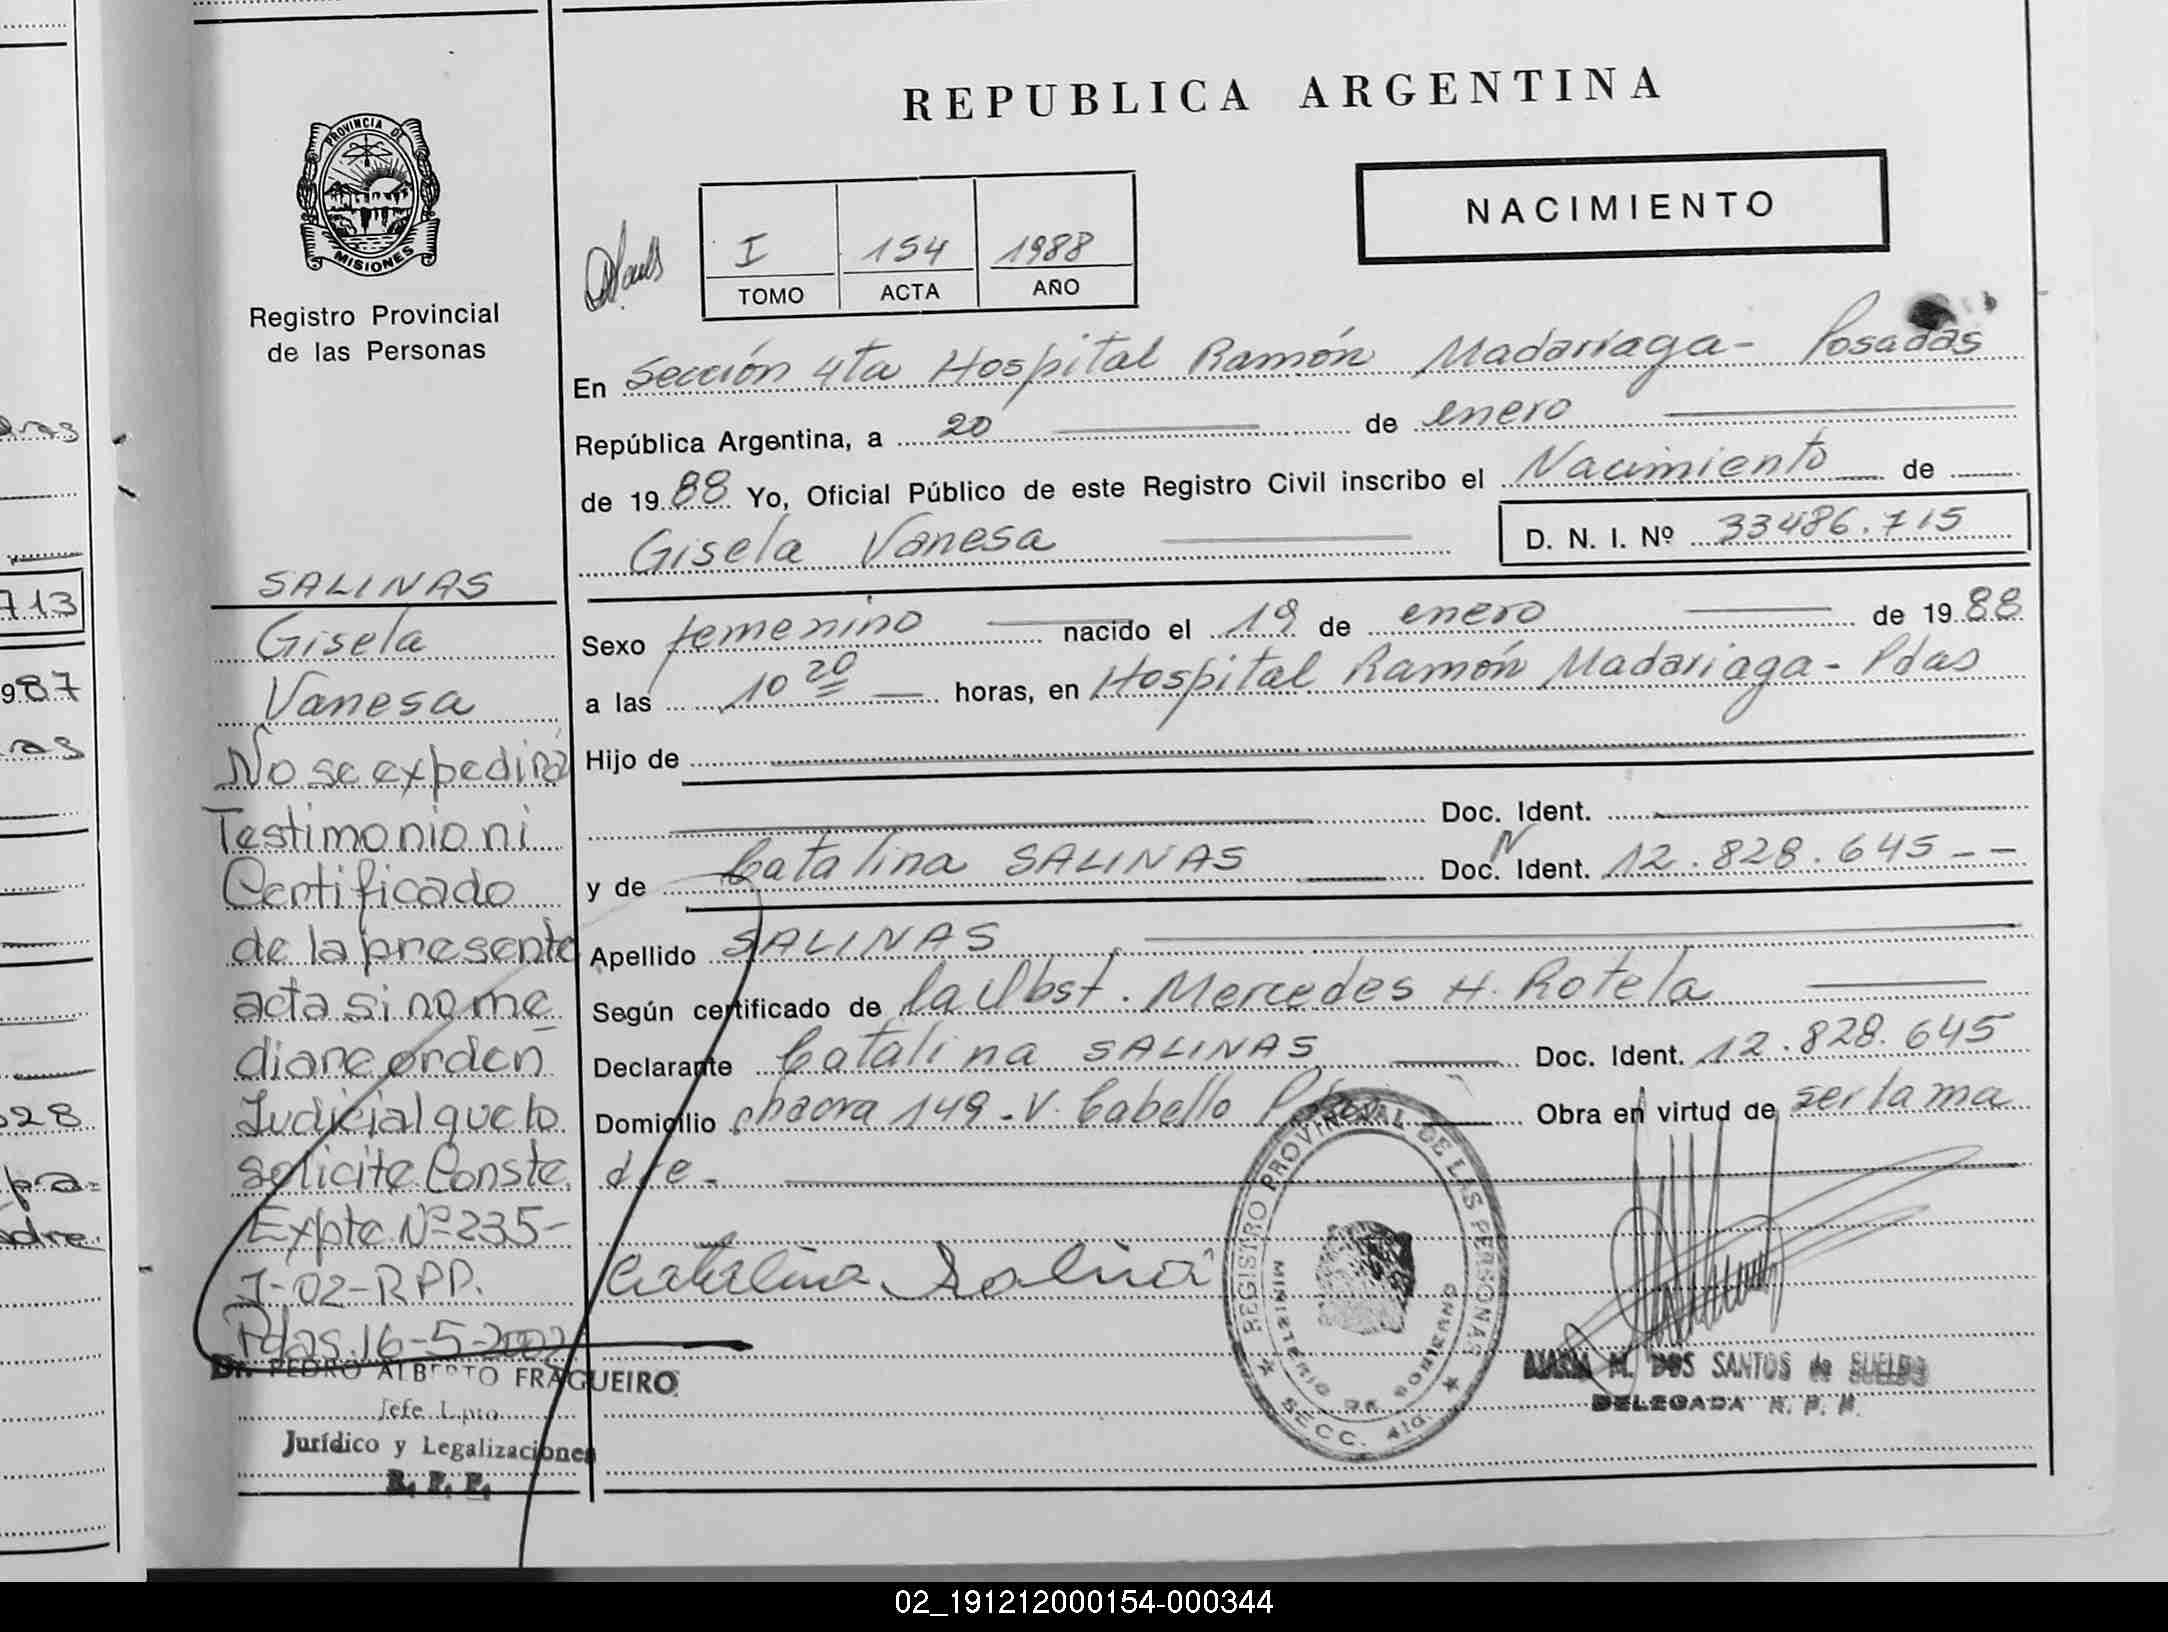 REPUBLICA ARGENTINA
NACIMIENTO
PROVINCIA DE
MISIONES
Registro Provincial
de las Personas
I 154 1988
TOMO ACTA AÑO
En Sección 4ta Hospital Ramón Madariaga - Posadas
República Argentina, a 20 de enero
de 1988 Yo, Oficial Público de este Registro Civil inscribo el Nacimiento de
Gisela Vanesa D. N. I. Nº 33486.715
Sexo femenino nacido el 19 de enero de 1988
a las 10 20 horas, en Hospital Ramón Madariaga - Pdas
Hijo de
Doc. Ident.
y de Catalina SALINAS Doc. N Ident. 12.828.645 - -
Apellido SALINAS
Según certificado de la Obst. Mercedes H. Rotela
Declarante Catalina SALINAS Doc. Ident. 12.828.645
Domicilio chacra 149 - V. Cabello Obra en virtud de ser la ma
dre -
Catalina Salina
REGISTRO PROVINCIAL DE LAS PERSONAS
MINISTERIO DE GOBIERNO
SECC. 4ta.
MARIA M. DOS SANTOS de SUELDO
DELEGADA R. P. P.
SALINAS
Gisela
Vanesa
No se expedirá
Testimonio ni
Certificado
de la presente
acta si no me
diare orden
Judicial que lo
solicite. Conste.
Expte Nº 235-
J-02-RPP.
Pdas. 16-5-2002
Dr. PEDRO ALBERTO FRAGUEIRO
Jefe Dpto.
Jurídico y Legalizaciones
R. P. P.
713
987
as
528
pa=
adre.
02_191212000154-000344